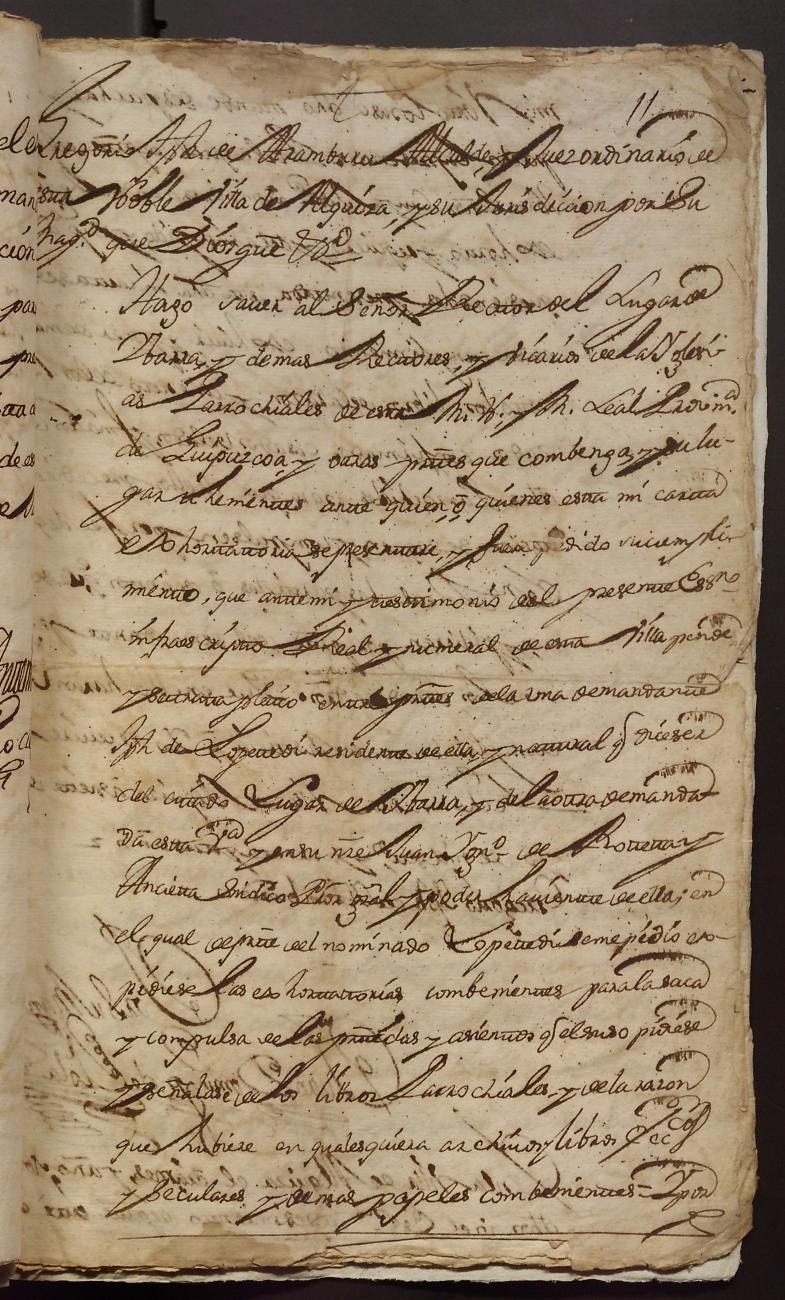 11
Gregorio Jph de Aramburu Alcalde y Juez ordinario de
esta Noble Villa de Alquiza, y su Jurisdicion por Su
Mag.d que Dios gue &.a
Hago saver al Señor Rector del Lugar de
Ybarra, y demas Rectores, y Vicarios de las Yglesi-
as Parrochiales de esta M. N. y M. Leal Provin.a
de Guipuzcoa y otras partes que combenga, y su lu-
gar thenientes ante quien, o quienes esta mi carta
exhortatoria se presentare, y fuere pedido su cumpli-
miento, que ante mi y testimonio del presente Essno
infraescripto Real y numeral de esta Villa pende
y se trata pleito entre partes de la una demandante
Jph de Lopetedi residente de ella, y natural q dicese
del citado Lugar de Ybarra, y de la otra demanda-
da esta Villa y en su nre Juan Ygn.o de Roteta y
Ancieta Sindico Pror gral y poder haviente de ella; en
el qual de pte del nominado Lopetedi seme pidio ex-
pidiese las exhortatorias combenientes para la saca
y compulsa de las partidas y asientos q el suso pidiese
y señalase de los libros Parrochiales, y de la razon
que hubiere en qualesquiera archivos y libros Ecc.cos
y seculares y demas papeles combenientes = Y por